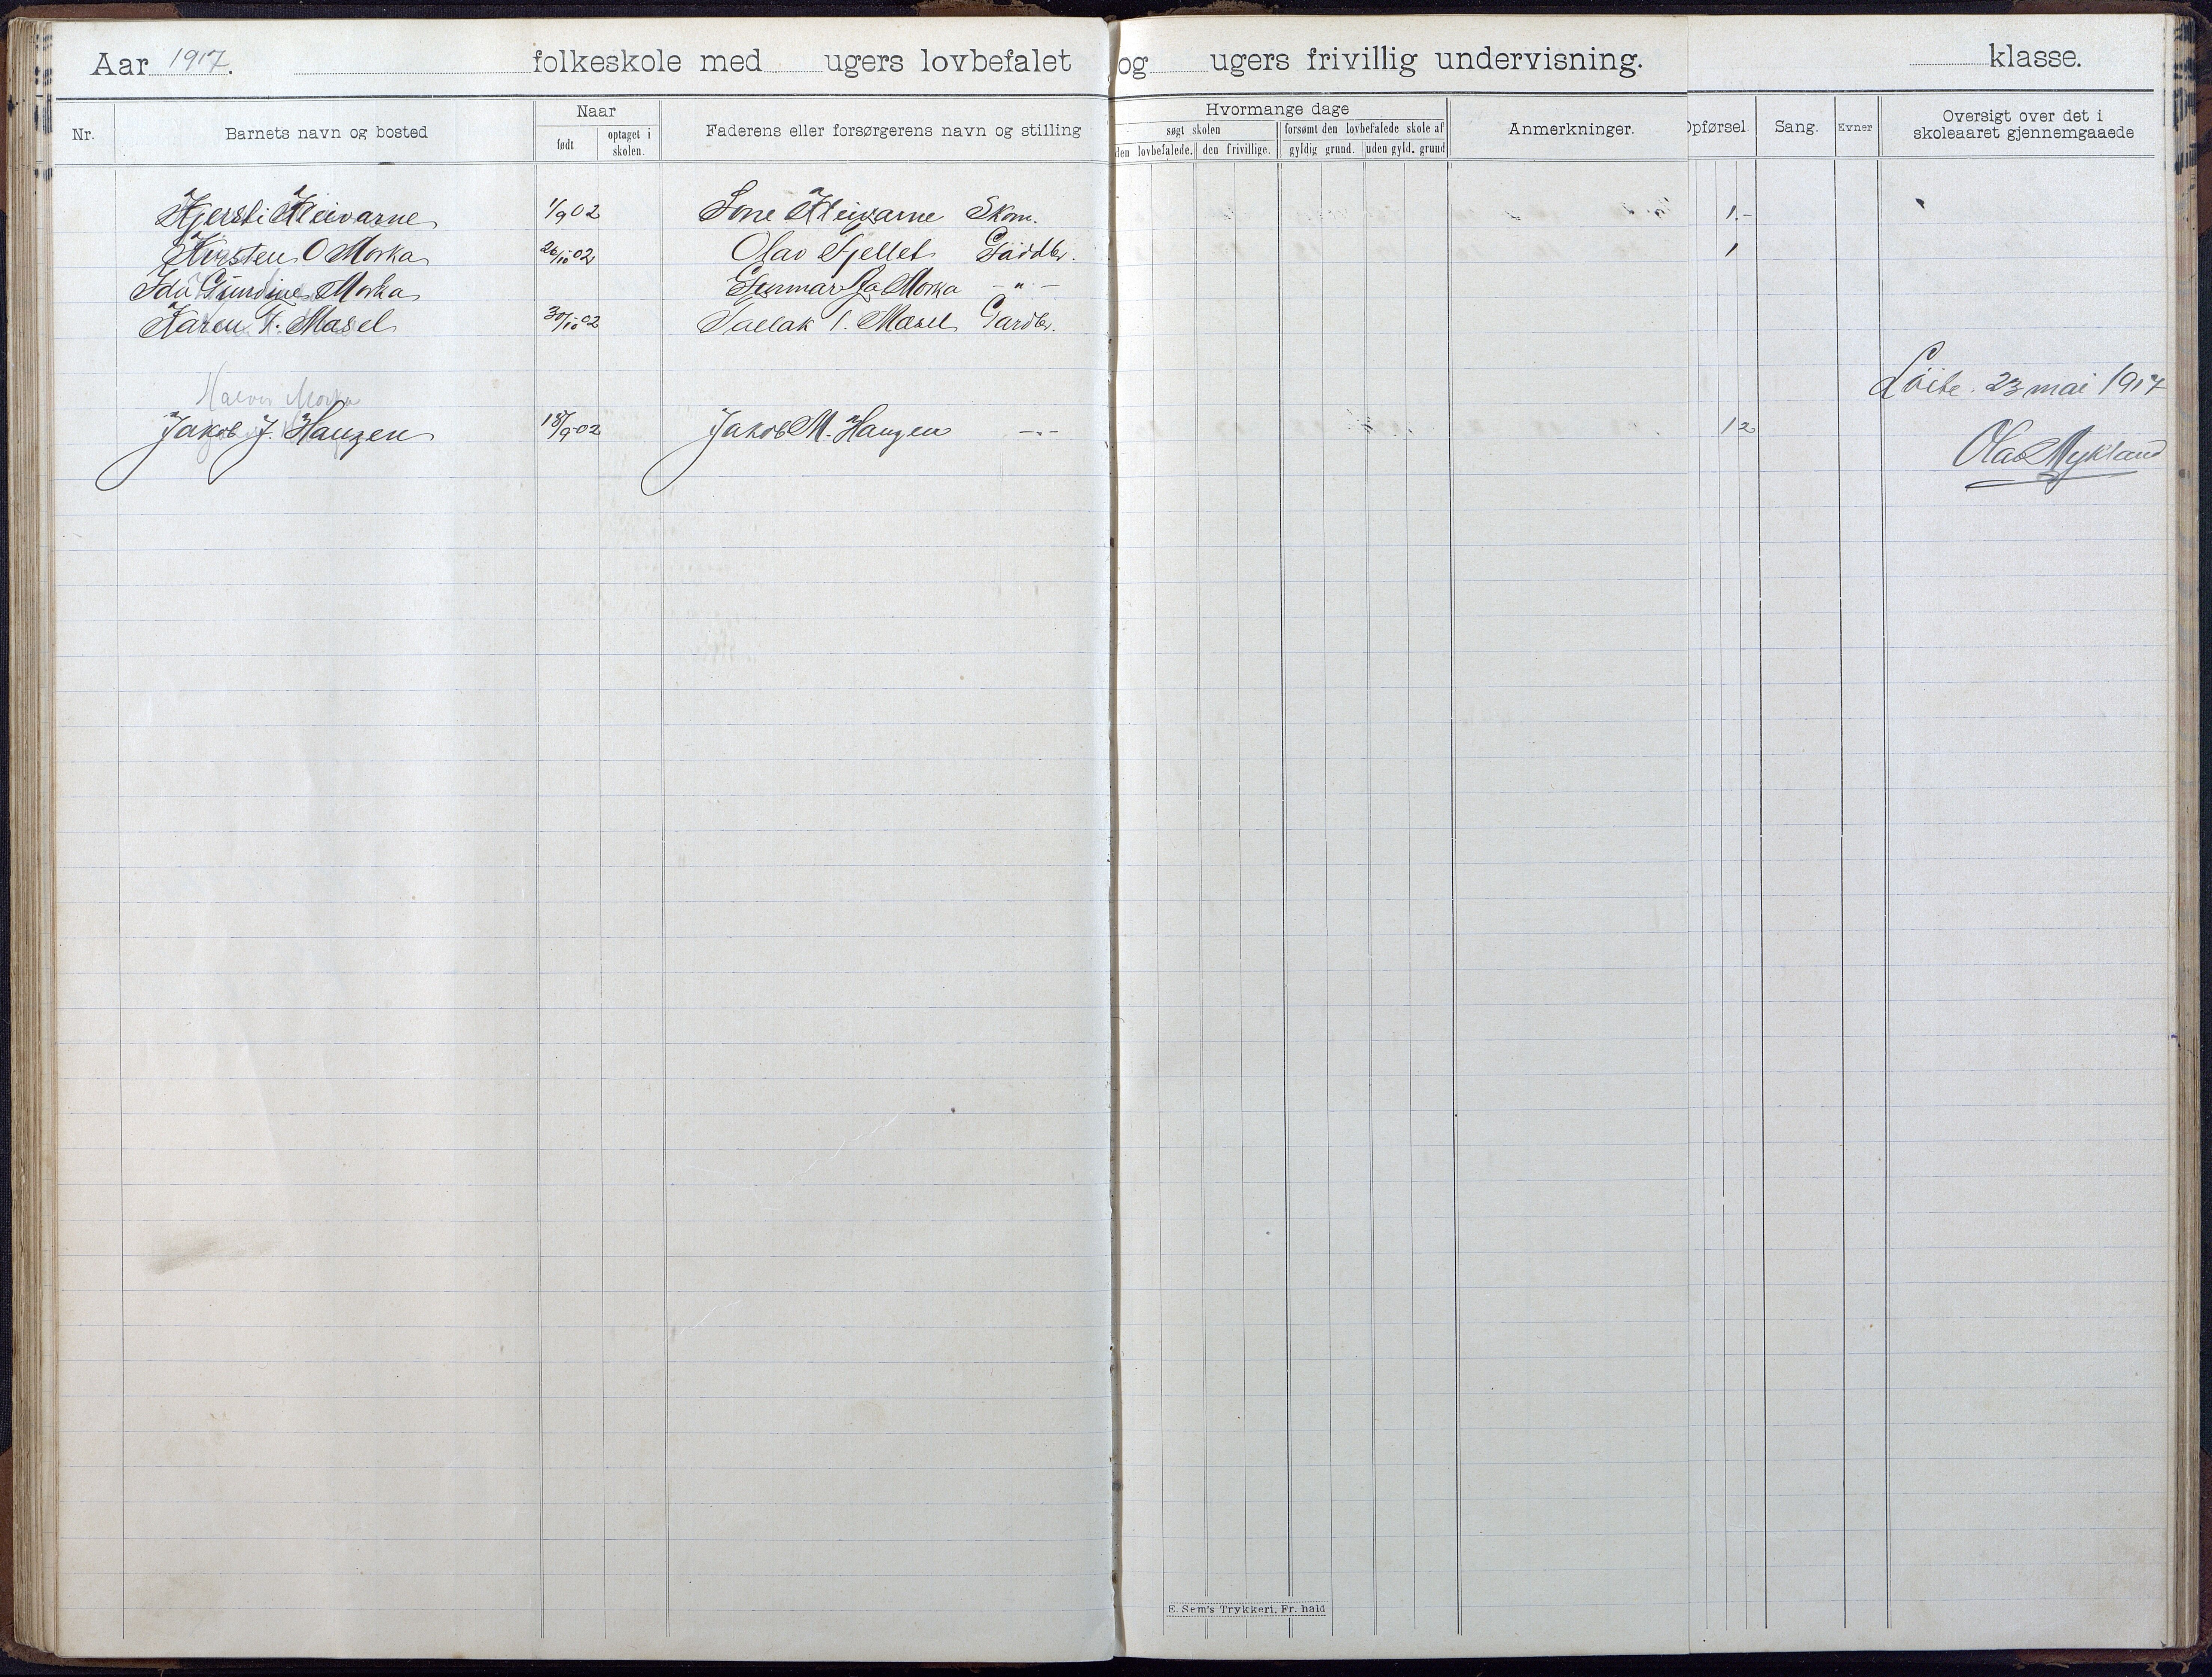 Aar 1917. folkeskole med ugers lovbefalet og ugers frivillig undervisning. klasse.
Nr. Barnets navn og bosted Naar født optaget i skolen. Faderens eller forsørgerens navn og stilling
Hvormange dage søgt skolen den lovbefalede. den frivillige. forsømt den lovbefalede skole af gyldig grund. uden gyld. grund Anmerkninger.
Opførsel Sang. Evner Oversigt over det i skoleaaret gjennemgaaede
Kjersti Kleivarne 1/9 02 Tone Kleivarne Skom. 1.-
Kirsten O Morka 26/10 02 Olav Fjellet Gaardbr. 1
Ida Gundine Morka Gunnar Ga Morka - " -
Karen T. Masel 30/10 02 Tallak T. Masel Gardbr.
Halvor Morka
Løite. 23 mai 1917
Jakob J. Haugen 18/9 02 Jakob M. Haugen -"- 12
Olav Mykland
E. Sem's Trykkeri, Fr. hald